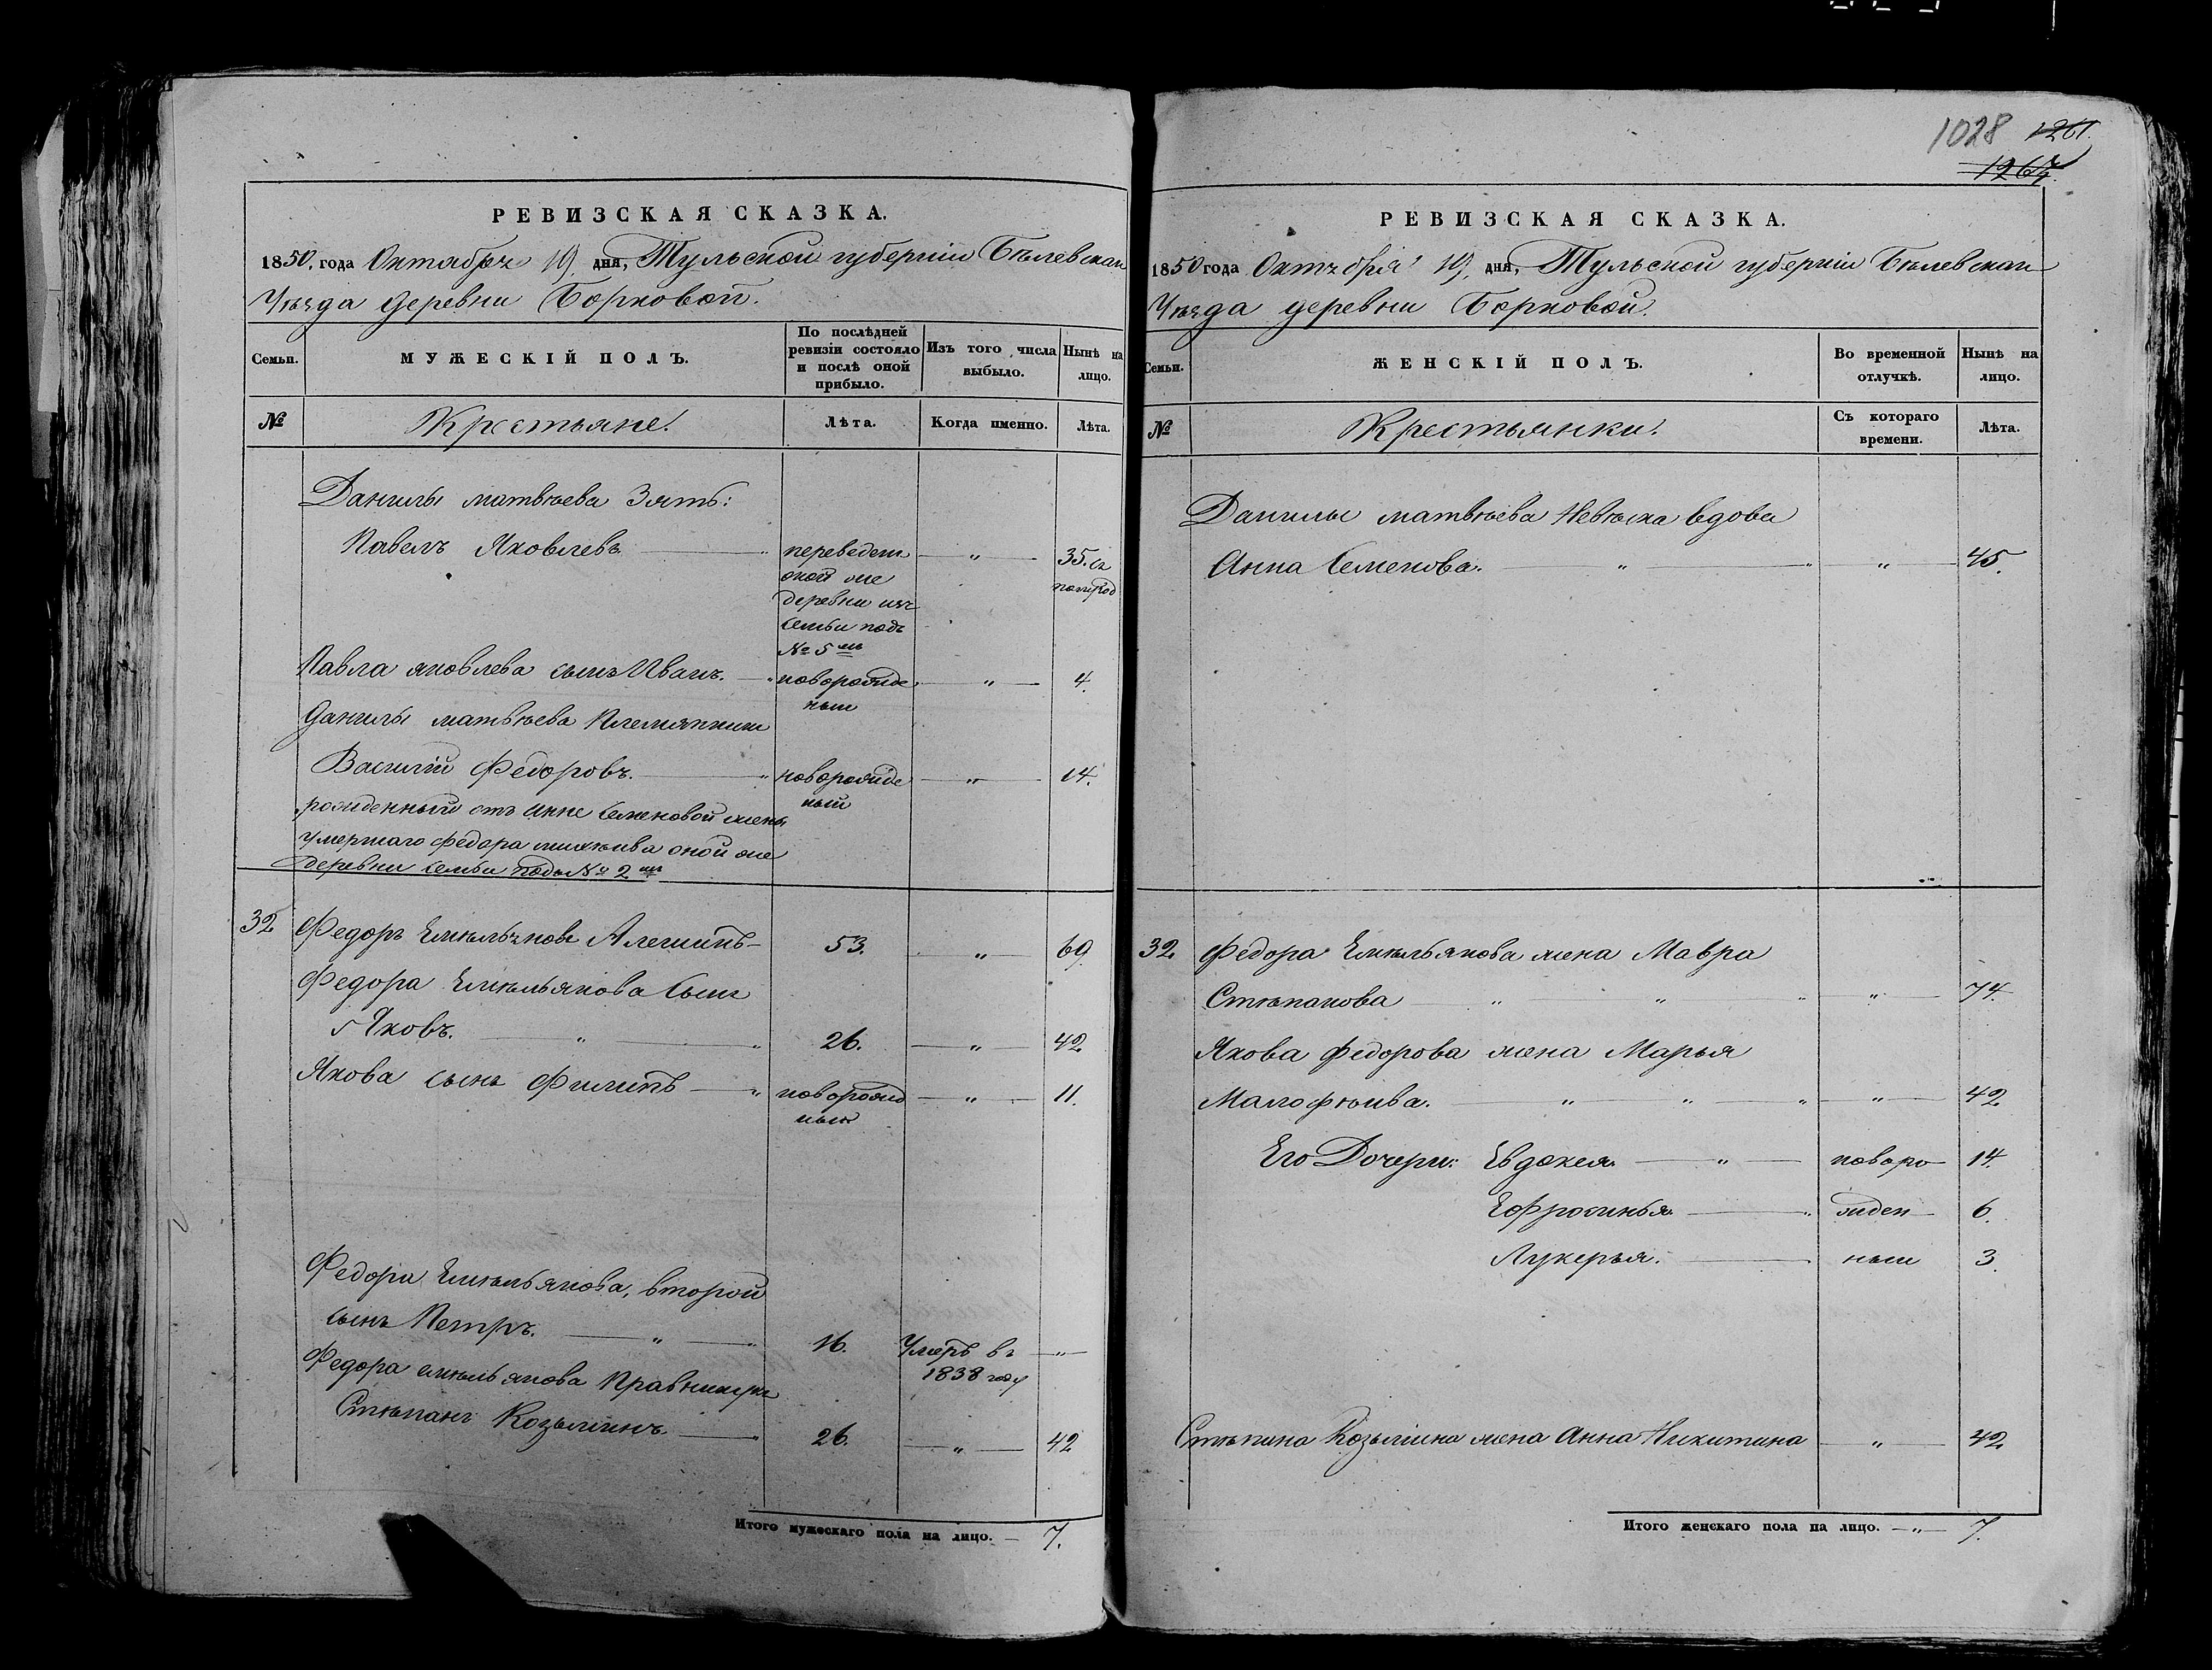 РЕВИЗСКАЯ СКАЗКА.
1850. года Октября 19, дня, Тульской губернiи Бѣлевскаго
Уѣзда деревни Борковой.
Семьи.
МУЖЕСКІЙ ПОЛЪ.
По послѣдней
ревизіи состояло
и послѣ оной
прибыло.
Изъ того числа
выбыло.
Нынѣ на
лицо.
№
Крестьяне.
Лѣта.
Когда именно.
Лѣта.
Данилы матвѣева Зять:
Павелъ Яковлевъ переведен " 35. съ
оной же
деревни изъ
семьи подъ
№ 5 мъ
Павла яковлева сынъ Иванъ. " новорожде " 4.
ный
Данилы матвѣева Племянники
Василій Федоровъ. " новорожде " 14.
ный
рожденный отъ Анны Семеновой жены
умершаго Федора оной же
деревни семьи подъ № 2 мъ
32 Федоръ Емельяновъ Алешинъ 53. " 69
Федора Емельянова Сынъ
Яковъ. " " 26. " 42
Якова сынъ Филипъ " новорожд " 11.
ный
Федора Емельянова, второй
сынъ Петръ. " " 16. Умеръ въ "
1838 году
Федора емельянова Правнукъ
Степанъ Козьминъ. " 26. " 42
Итого мужескаго пола на лицо. — 7.
1028 1261.
РЕВИЗСКАЯ СКАЗКА.
1850 года Октября 19, дня, Тульской губернiи Бѣлевскаго
Уѣзда деревни Борковой.
Семьи.
ЖЕНСКІЙ ПОЛЪ.
Во временной
отлучкѣ.
Нынѣ на
лицо.
№
Крестьянки.
Съ котораго
времени.
Лѣта.
Данилы матвѣева Невѣска вдова
Анна Семенова. " " " 45.
32. Федора Емельянова жена Мавра
Степанова " " " " 74.
Якова федорова жена Марья
Малофѣива. " " " " 42
Его Дочери: Евдокея " новоро 14.
Ефросинья " жден 6.
Лукерья. ныи 3.
Степана Козьмина жена Анна Никитина " 42
Итого женскаго пола на лицо. — " — 7.